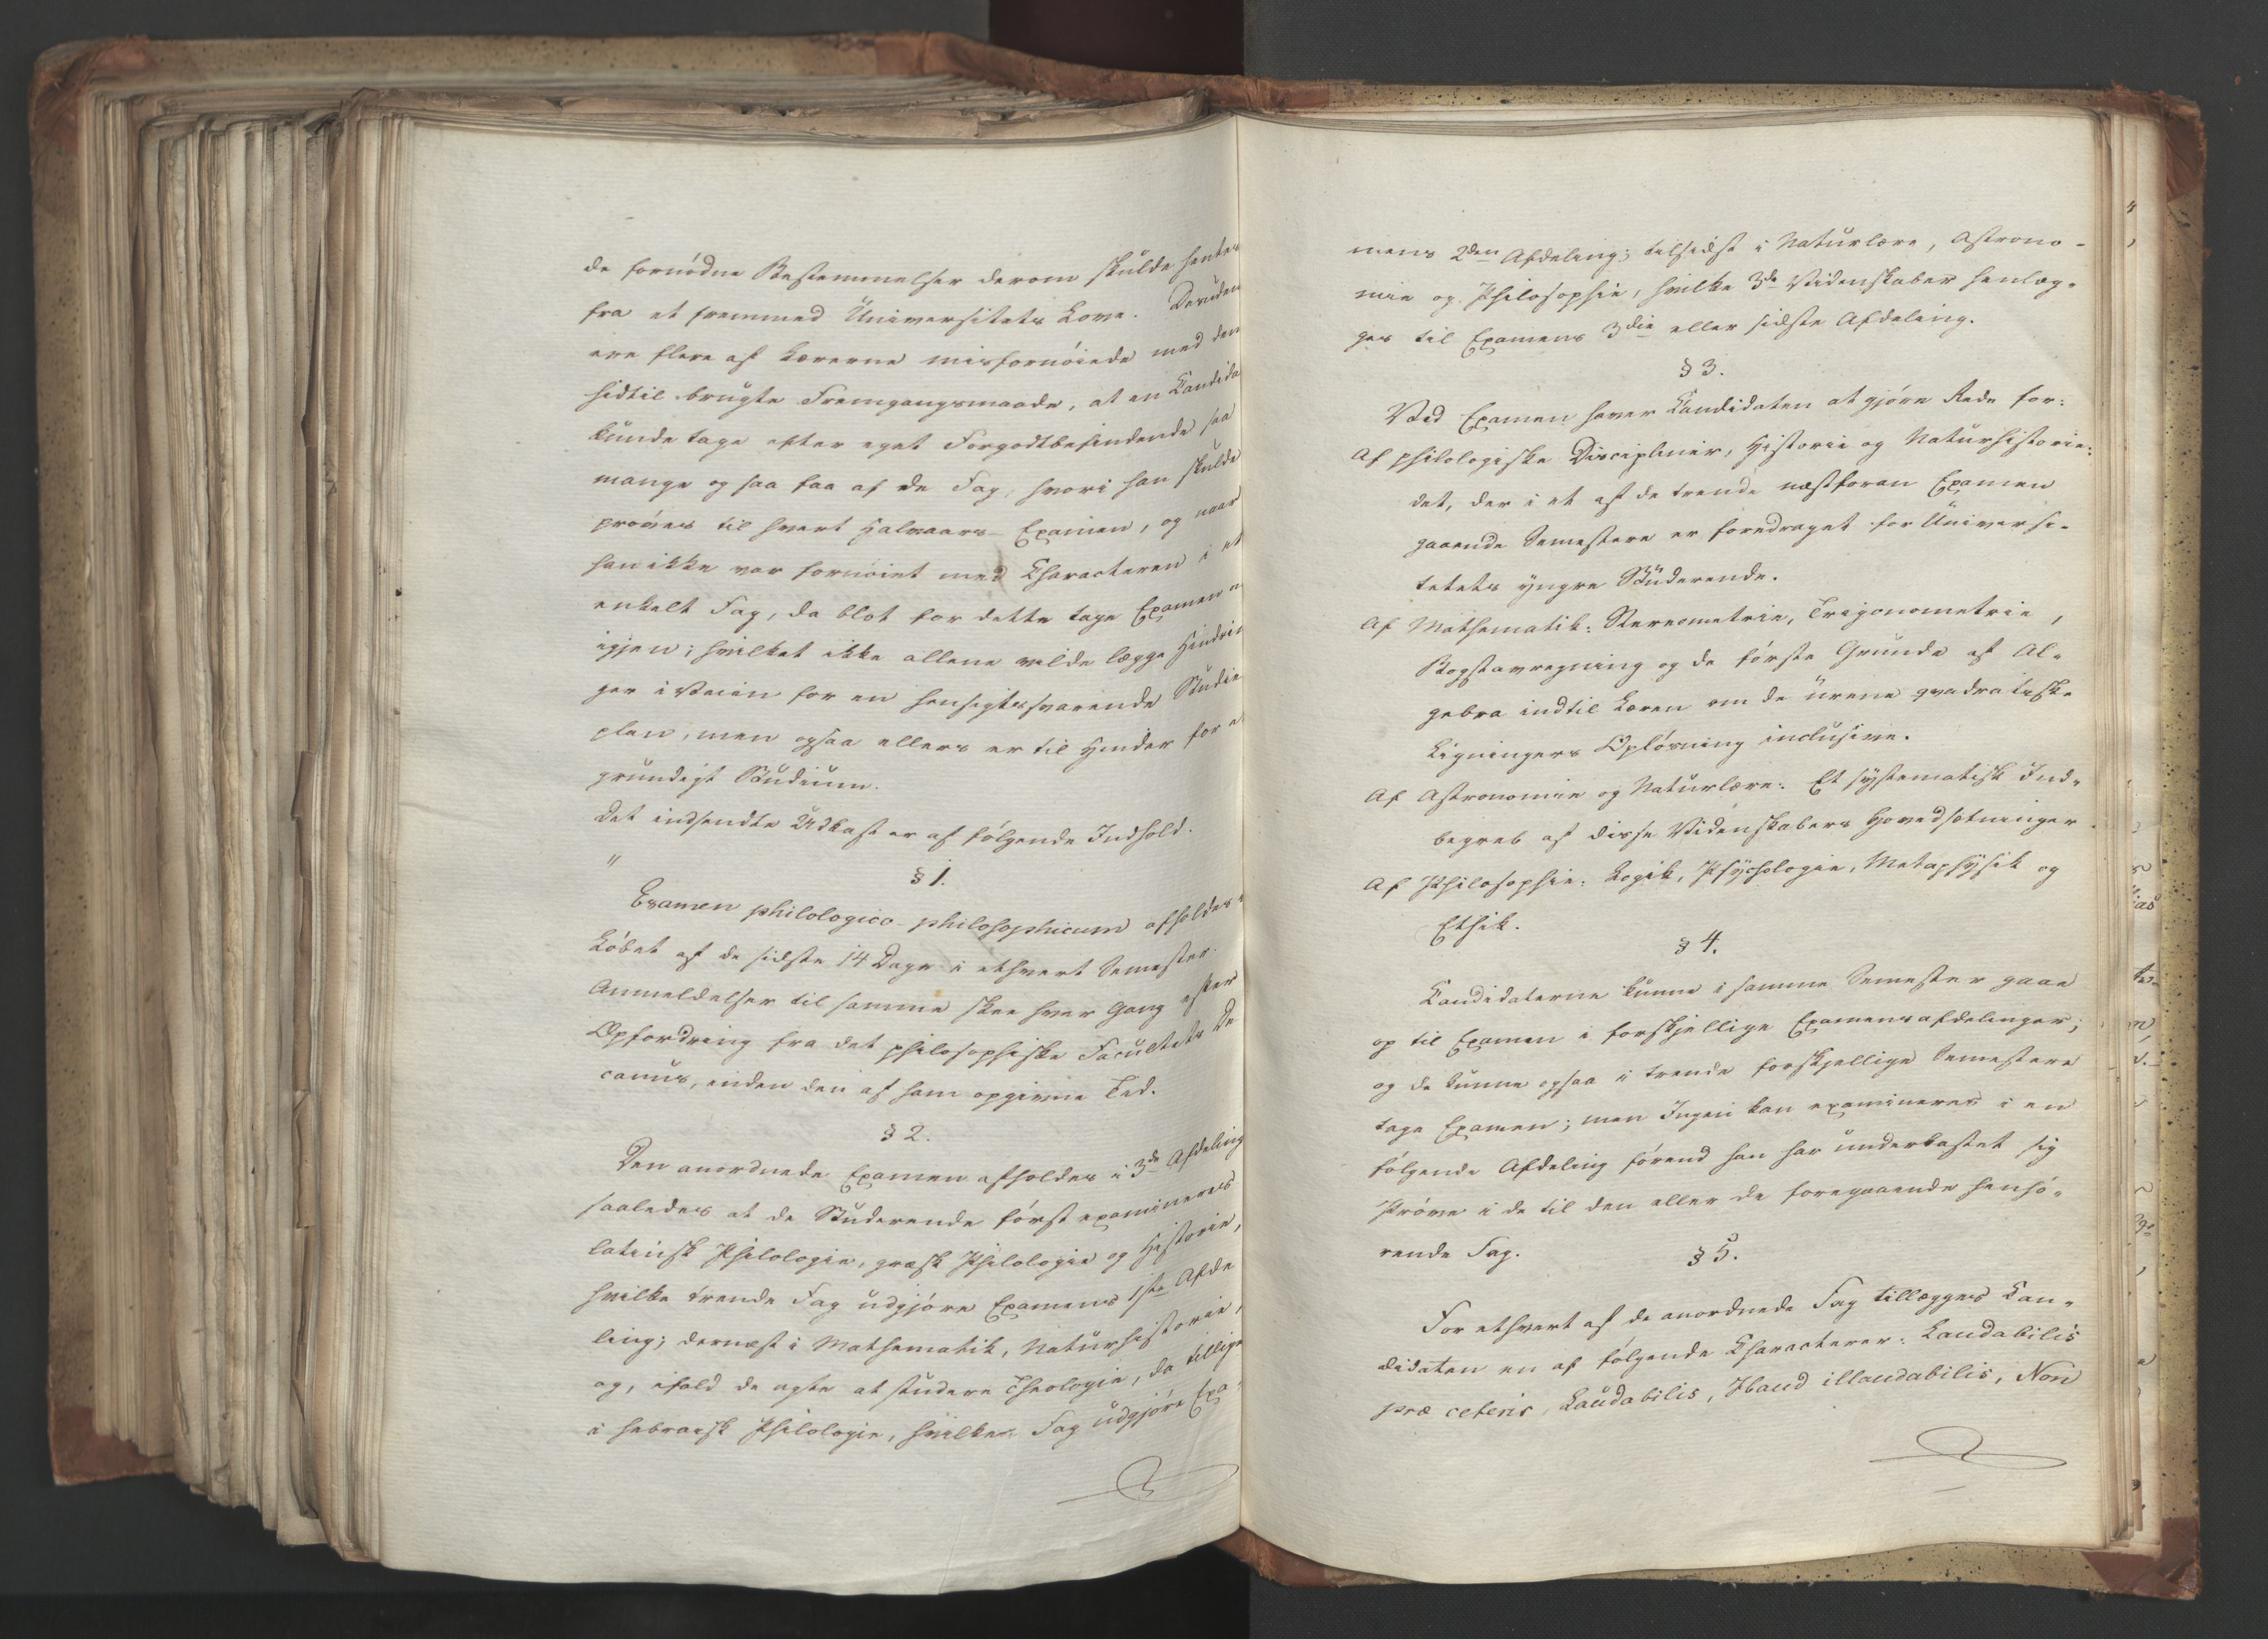 de fornödne Bestemmelser derom skulde hentes
fra et fremmed Universitets Love. Desuden
ere flere af Lærerne misfornöiede med den
hidtil brugte Fremgangsmaade, at en Candida
kunde tage efter eget Forgodtbefindende saa
mange og saa faa af de Fag, hvori han skulde
pröves til hvert Halvaars-Examen, og naar
han ikke var fornöiet med Characteren i et
enkelt Fag, da blot for dette tage Examen
igjen; hvilket ikke allene vilde lægge Hindrin
ger i Veien for en hensigtssvarende Studie
plan, men ogsaa ellers er til Hinder for e
grundigt Studium.
Det indsendte Udkast er af fölgende Indhold.
"
§ 1.
Examen philologico-philosophicum afholdes i
Löbet af de sidste 14 Dage i ethvert Semester.
Anmeldelser til samme skee hver Gang efter
Opfordring fra det philosophiske Facultets De
canus, inden den af ham opgivne Tid.
§ 2.
Den anordnede Examen afholdes i 3de Afdeling
saaledes at de Studerende först examineres
latinsk Philologie, græsk Philologie og Historie,
hvilke trende Fag udgjöre Examens 1ste Afde
ling; dernæst i Mathematik, Naturhistorie,
og, ifald de agte at studere Theologie, da tillige
i hebraisk Philologie, hvilke Fag udgjöre Exa-
mens 2den Afdeling; tilsidst i Naturlære, Astrono-
mie og Philosophie, hvilke 3de Videnskaber henlæg-
ges til Examens 3die eller sidste Afdeling.
§ 3.
Ved Examen haver Candidaten at gjöre Rede for:
Af philologiske Discipliner, Historie og Naturhistorie:
det, der i et af de trende næstforan Examen
gaaende Semestere er foredraget for Universi-
tetets yngre Studerende.
Af Mathematik: Stereometrie, Trigonometrie,
Bogstavregning og de förste Grunde af Al-
gebra indtil Læren om de urene qvadratiske
Ligningers Oplösning inclusive.
Af Astronomie og Naturlære: Et systematisk Ind-
begreb af disse Videnskabers Hovedsætninger.
Af Philosophie: Logik, Psychologie, Metaphysik og
Ethik.
§ 4.
Candidaterne kunne i samme Semester gaae
op til Examen i forskjellige Examensafdelinger;
og de kunne ogsaa i trende forskjellige Semestere
tage Examen; men Ingen kan examineres i en
fölgende Afdeling förend han har underkastet sig
Pröve i de til den eller de foregaaende henhö-
rende Fag.
§ 5.
For ethvert af de anordnede Fag tillægges Can-
didaten en af fölgende Characterer: Laudabilis
præ ceteris, Laudabilis, Haud illaudabilis, Non